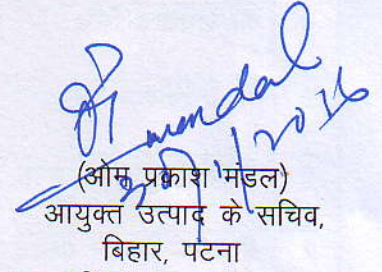 mandal
(ओम प्रकाश मंडल)
आयुक्त उत्पाद के सचिव,
बिहार, पटना